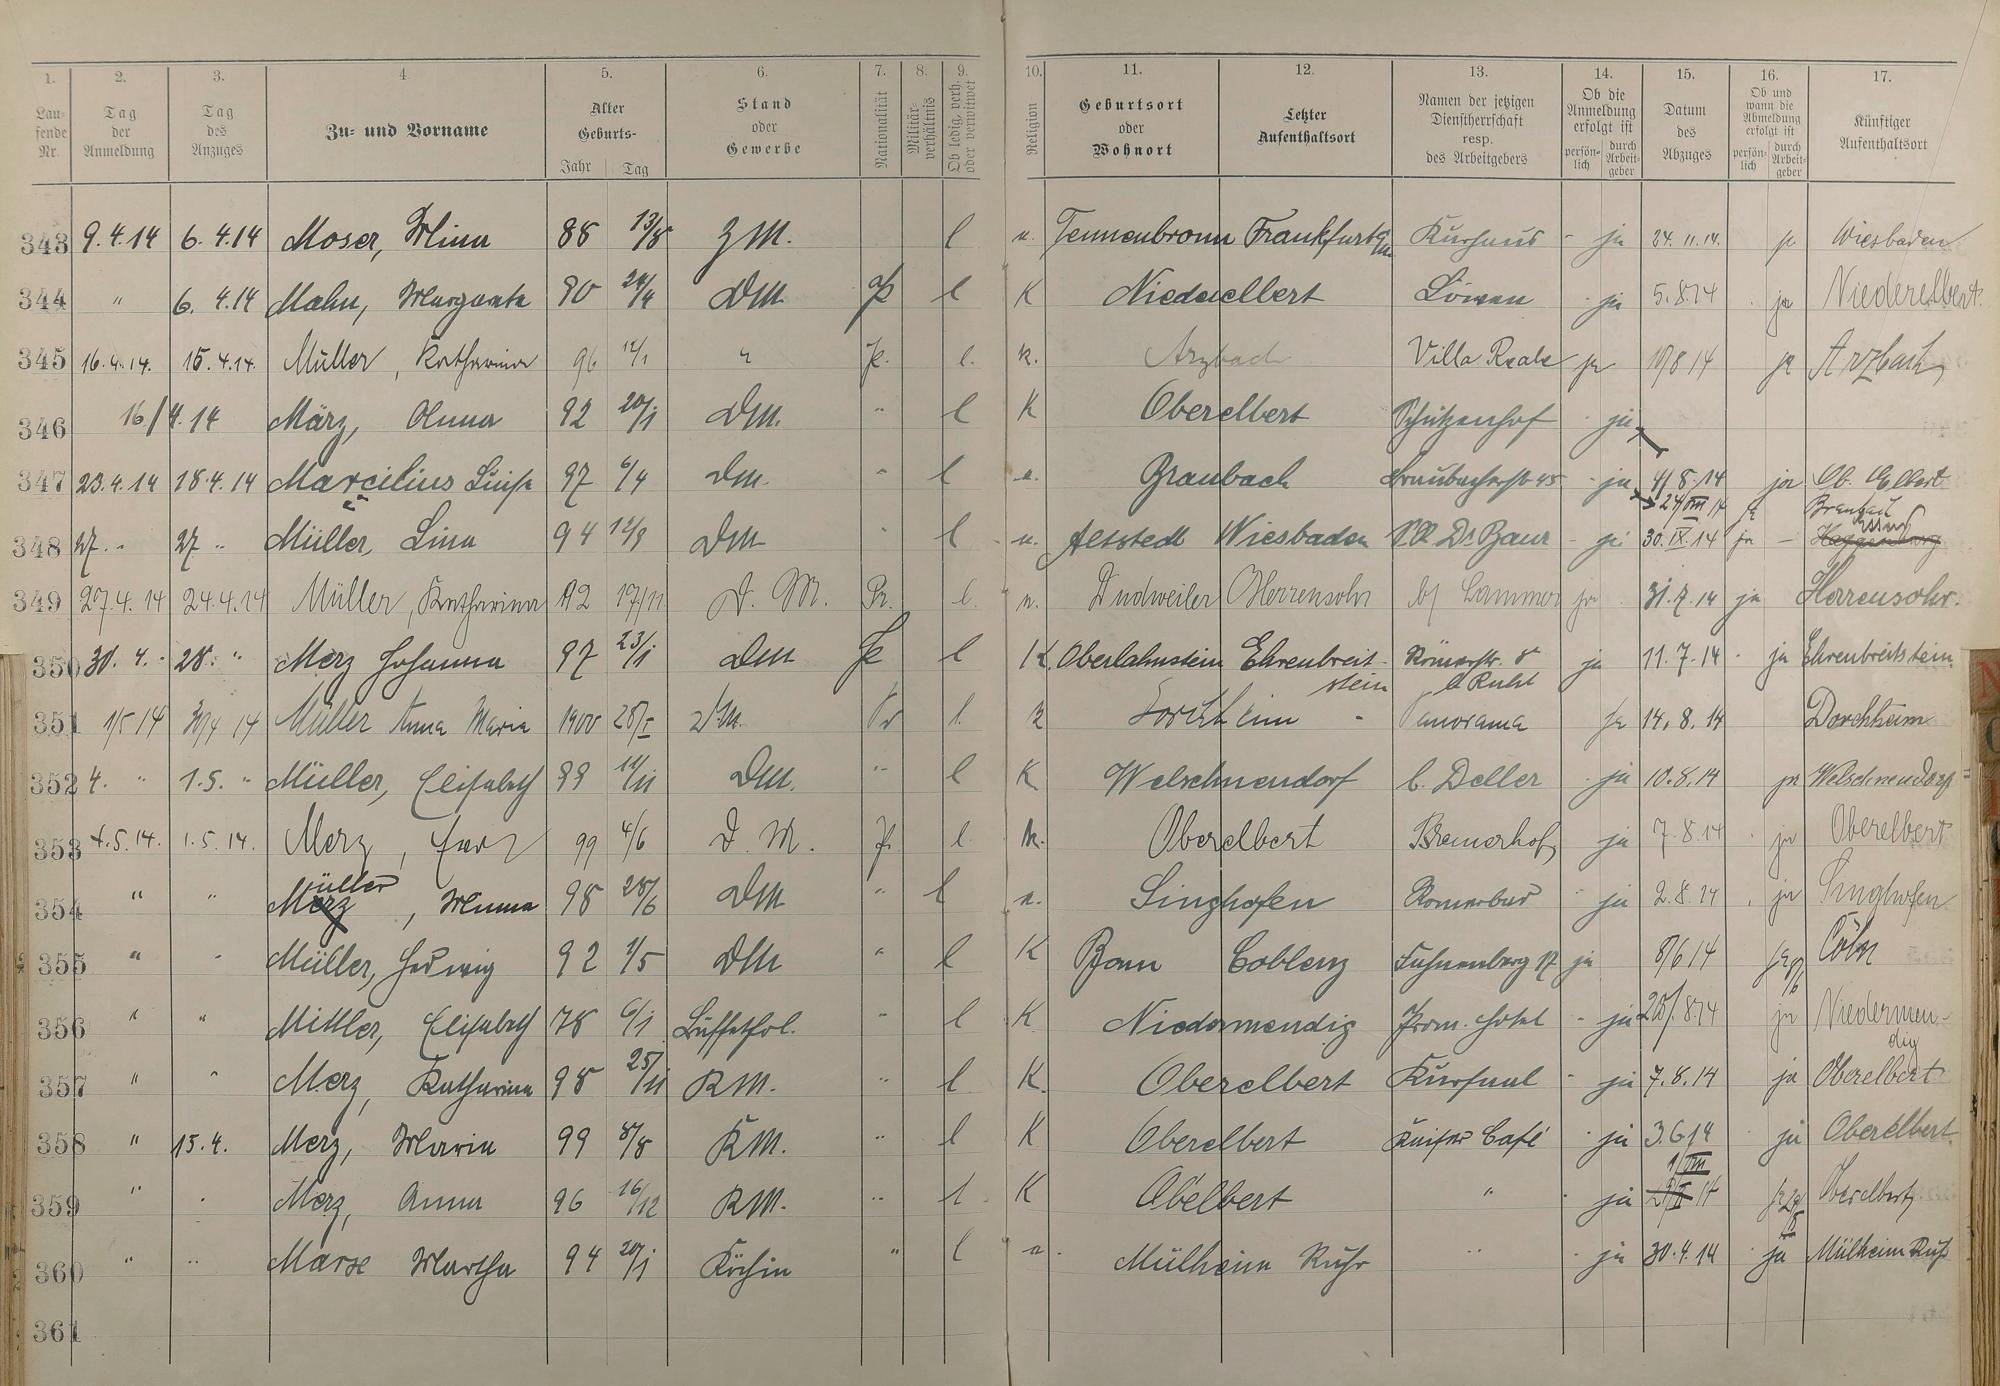 1. 2. 3. 4. 5. 6. 7. 8. 9. 10. 11. 12. 13. 14. 15. 16. 17.
Laufende Nr. | Tag der Anmeldung | Tag des Anzuges | Zu- und Vorname | Alter Geburts- Jahr Tag | Stand oder Gewerbe | Nationalität | Militärverhältnis | Ob ledig, verh. oder verwitwet | Religion | Geburtsort oder Wohnort | Letzter Aufenthaltsort | Namen der jetzigen Dienstherrschaft resp. des Arbeitgebers | Ob die Anmeldung erfolgt ist persönlich durch Arbeitgeber | Datum des Abzuges | Ob und wann die Abmeldung erfolgt ist persönlich durch Arbeitgeber | Künftiger Aufenthaltsort
343 9.4.14 6.4.14 Moser, Mina 88 13/8 ZM. l Tennenbronn Frankfurt Kurhaus - ja 24.11.14. ja Wiesbaden
344 " 6.4.14 Mahn, Margareta 90 24/4 DM. Pr l K Niederelbert Löwen ja 5.8.14 ja Niederelbert.
345 16.4.14. 15.4.14. Müller, Katharina 96 12/1 " Pr. l. K. Arzbach Villa Reale ja 19/8 14 ja Arzbach
346 16/4.14 März, Anna 92 20/1 DM. " l K Oberelbert Schützenhof ja
347 23.4.14 18.4.14 Marcilius Luise 97 6/4 DM. " l Braubach Braubacherstr 45 ja 4/8.14 ja Ob. Elbert
24/VIII 14 ja Braubach
348 27. " 27 " Müller, Lina 94 12/9 DM " l Wiesbaden Dr Baur ja 30.IX.14 ja -
349 27.4.14 24.4.14 Müller, Katharina 92 17/11 D. M. Pr. l. Dudweiler Herrensohr b/ Lammer ja 31.7.14 ja Herrensohr.
350 30.4. 28. " Merz Johanna 97 23/1 DM Pr l K. Oberlahnstein Ehrenbreitstein Römerstr. 8 ja 11.7.14 ja Ehrenbreitstein.
351 1/5 14 30/4 14 Müller Anna Maria 1900 28/5 DM. Pr l. K Panorama ja 14.8.14 Dorchheim
352 4. " 1.5. " Müller, Elisabeth 99 14/11 DM. " l K Welschnendorf b. Deller ja 10.8.14 ja Welschnendorf
353 4.5.14. 1.5.14. Merz, Eva 99 4/6 D. M. Pr. l K. Oberelbert Bremerhof ja 7.8.14 ja Oberelbert
354 " " Merz Müller, Minna 98 28/6 DM " l Singhofen Römerbad ja 2.8.14 ja Singhofen
355 " " Müller, Hedwig 92 1/5 DM " l K Bonn Coblenz 17 ja 8/6 14 ja 9/6 Cöln
356 " " Mittler, Elisabeth 78 6/1 Büffetfrl. " l K Niedermendig Prom. Hotel - ja 28/.8.14 ja Niedermendig
357 " " Merz, Katharina 98 25/11 KM. " l K. Oberelbert Kursaal - ja 7.8.14 ja Oberelbert
358 " 15.4. Merz, Maria 99 8/8 KM. " l K Oberelbert Kaiser Café ja 3.6 14 ja Oberelbert.
359 " Merz, Anna 96 16/12 KM. " l K Obelbert " ja 1/VIII 14 ja Oberelbert
360 " " Marse Martha 94 20/1 Köchin " l Mülheim Ruhr " ja 30.4.14 ja Mülheim Ruhr
361